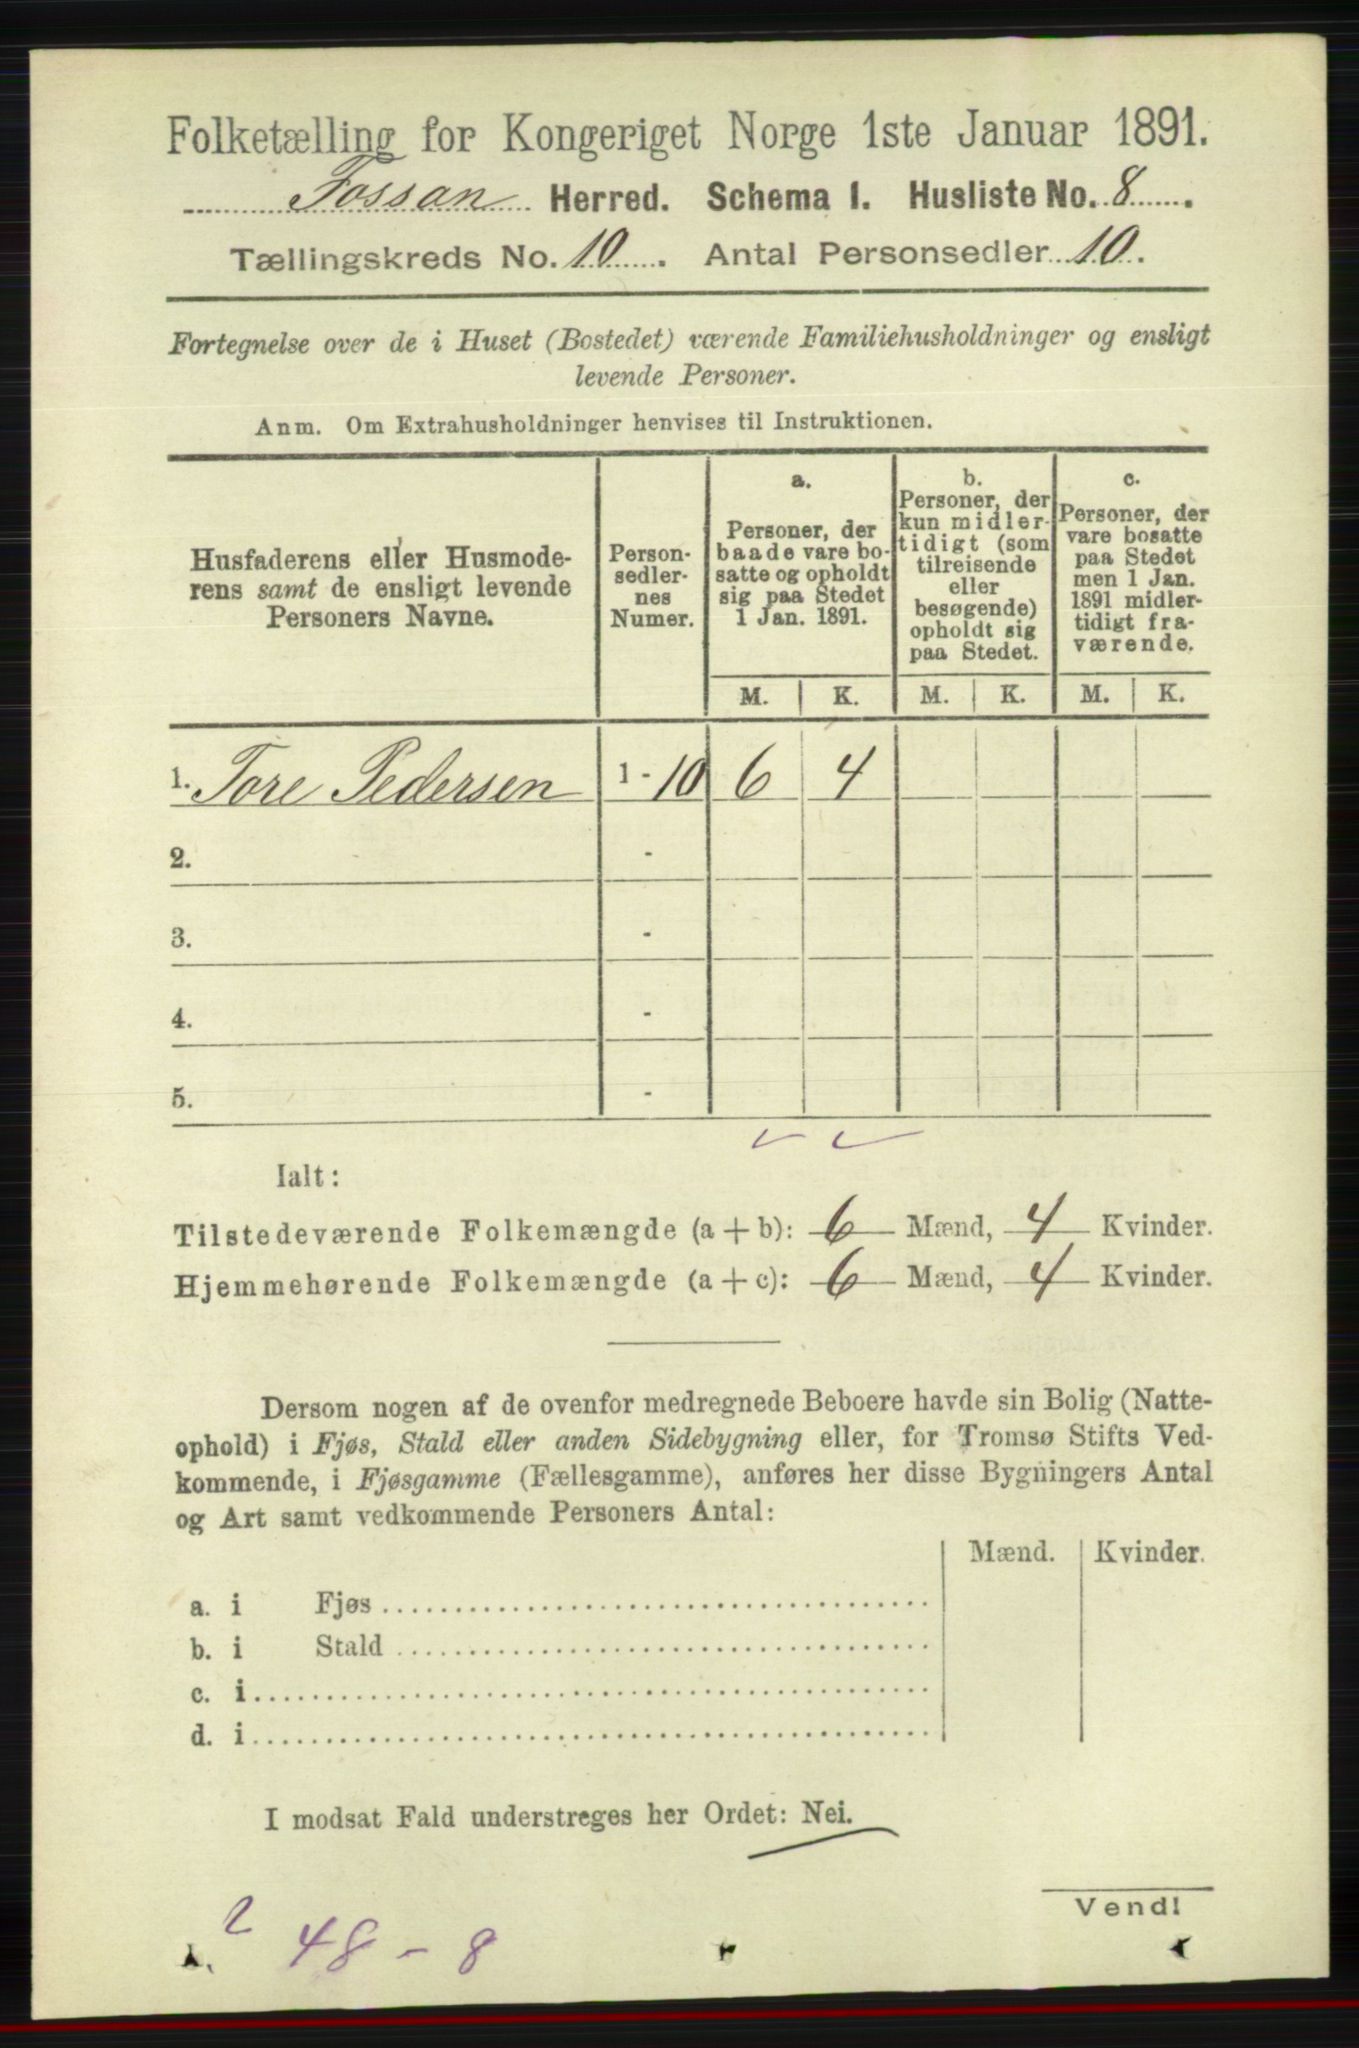 Folketælling for Kongeriget Norge 1ste Januar 1891.
Fossan Herred. Schema 1. Husliste No. 8.
Tællingskreds No. 10. Antal Personsedler 10.
Fortegnelse over de i Huset (Bostedet) værende Familiehusholdninger og ensligt
levende Personer.
Anm. Om Extrahusholdninger henvises til Instruktionen.
Husfaderens eller Husmode-
rens samt de ensligt levende
Personers Navne.
Person-
sedler-
nes
Numer.
a.
Personer, der
baade vare bo-
satte og opholdt
sig paa Stedet
1 Jan. 1891.
b.
Personer, der
kun midler-
tidigt (som
tilreisende
eller
besøgende)
opholdt sig
paa Stedet.
c.
Personer, der
vare bosatte
paa Stedet
men 1 Jan.
1891 midler-
tidigt fra-
værende.
M. K. M. K. M. K.
1. Tore Pedersen 1 - 10 6 4
2. -
3. -
4. -
5. -
Ialt:
Tilstedeværende Folkemængde (a + b): 6 Mænd, 4 Kvinder.
Hjemmehørende Folkemængde (a + c): 6 Mænd, 4 Kvinder.
Dersom nogen af de ovenfor medregnede Beboere havde sin Bolig (Natte-
ophold) i Fjøs, Stald eller anden Sidebygning eller, for Tromsø Stifts Ved-
kommende, i Fjøsgamme (Fællesgamme), anføres her disse Bygningers Antal
og Art samt vedkommende Personers Antal:
Mænd. Kvinder.
a. i Fjøs
b. i Stald
c. i
d. i
I modsat Fald understreges her Ordet: Nei.
Vend!
2
48 - 8